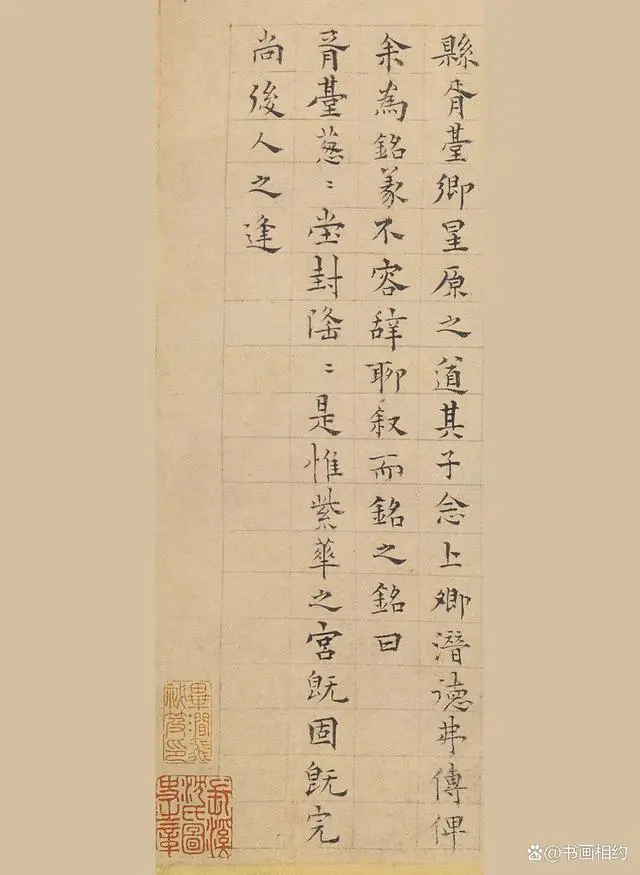 縣胥臺鄉星原之道其子念上卿潛德弗傳俾
余為銘義不容辞聊叙而銘之銘曰
胥臺蔥〻堂封隆〻是惟紫華之宮既固既完
尚後人之逢
畢澗飛秘笈印
溪沈氏圖章
@书画相约